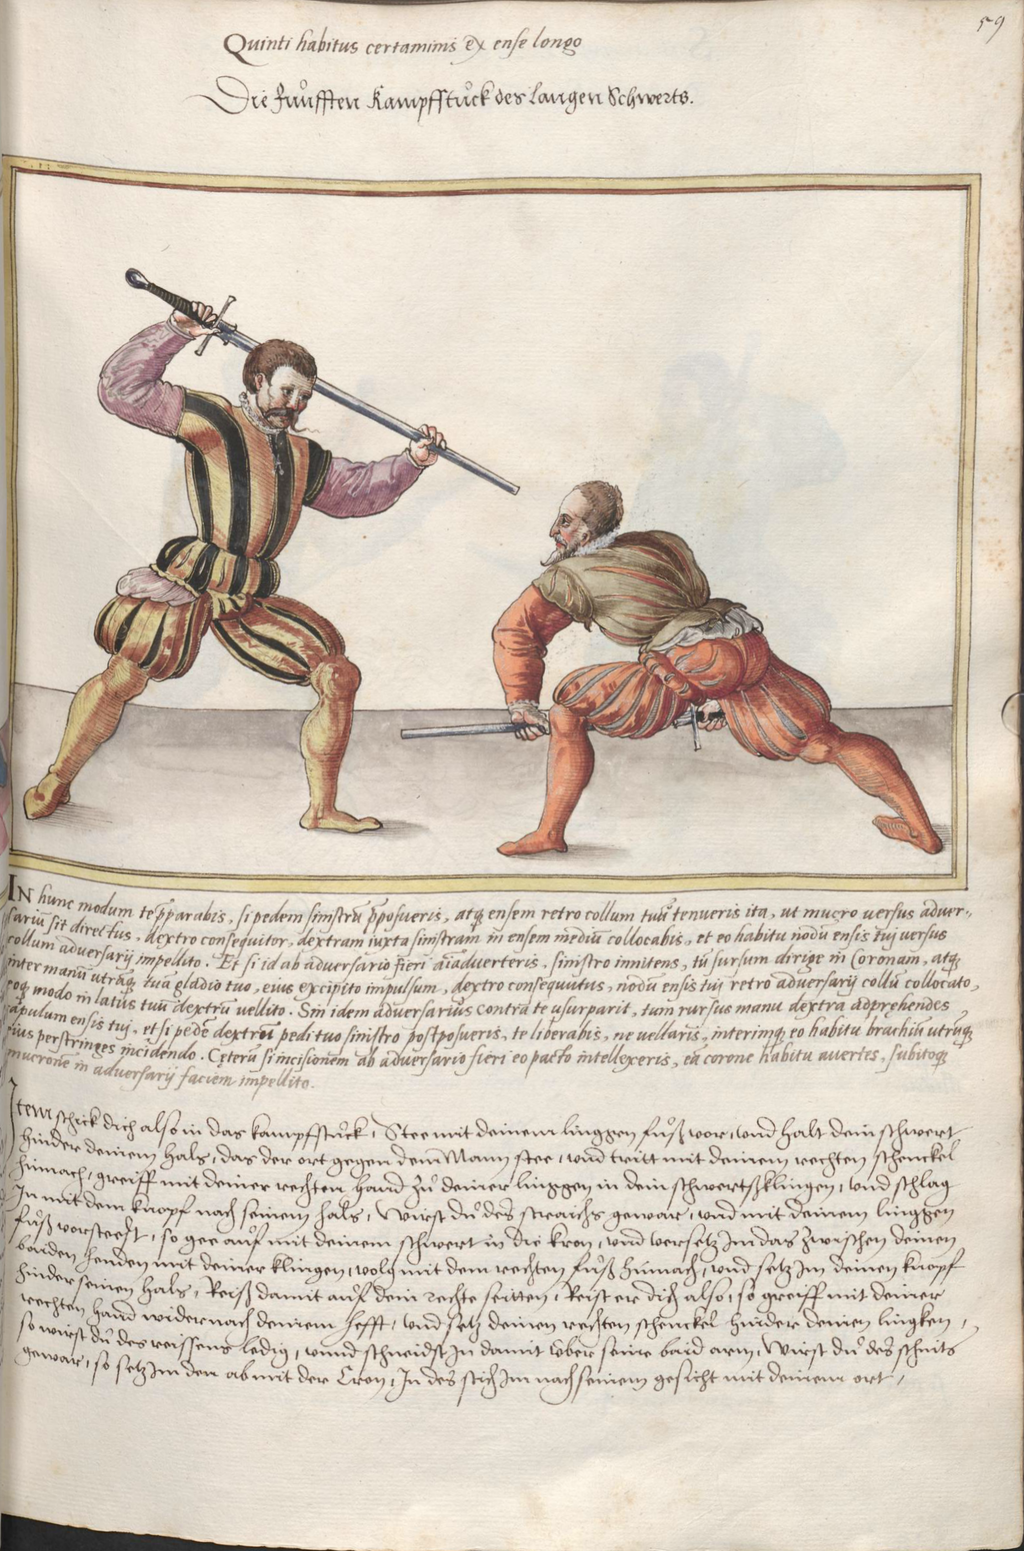 59
Quinti habitus certaminis ex ense longo
Die Fünfften Kampfstuck des langen Schwerts.
IN hunc modum te p̄parabis, si pedem sinistrū p̄posueris, atq ensem retro collum tuū tenueris ita, ut mucro versus adver-
sariū sit directus, dextro consequitor, dextram iuxta sinistram in ensem mediū collocabis, et eo habitu nodū ensis tuj versus
collum adversarij impellito. Et si id ab adversario fieri aīadverteris, sinistro innitens, tū sursum dirige in Coronam, atq
inter manū utrāq tuā gladio tuo, eius excipito impulsum, dextro consequutus, nodū ensis tuj retro adversarij collū collocato,
eoq modo in latus tuū dextrū vellito. Sin idem adversarius contra te usurparit, tum rursus manu dextra adprehendes
capulum ensis tuj, et si pede dextro pedi tuo sinistro postposueris, te liberabis, ne vellaris, interimq eo habitu brachiū utrūq
eius perstringes incidendo. Cęterū si incisionem ab adversario fieri eo pacto intellexeris, eā corone habitu avertes, subitoq
mucrone in adversarij faciem impellito.
Item schick dich also in das kampfstuckh, Stee mit deinem linggen fuoß vor, und halt dein schwert
hinder deinem hals, das der ort gegen dem Mann stee, und tritt mit deinem rechten schenckel
hinnach, greiff mit deiner rechten hand zu deiner linggen in dein schwerts klingen, und schlag
In mit dem knopf nach seinem hals, Würst du des straichs gewar, und mit deinem linggen
fuoß vorsteest, so gee auf mit deinem schwert in die kron, und versetz Im das zwischen deinen
baiden henden mit deiner klingen, volg mit dem rechten fuoß hinnach, und setz Im deinen knopf
hinder seinen hals, Reiß damit auf dein rechte seitten, Reist er dich also, so greiff mit deiner
rechten hand wider nach deinem hefft, und setz deinen rechten schenckel hinder deinen lingken,
so würst du des reissens ledig, unnd schneidst In damit über seine baid arm, Würst du des schnits
gewar, so setz Im den ab mit der Cron, In des stich Im nach seinem gesicht mit deinem ort,